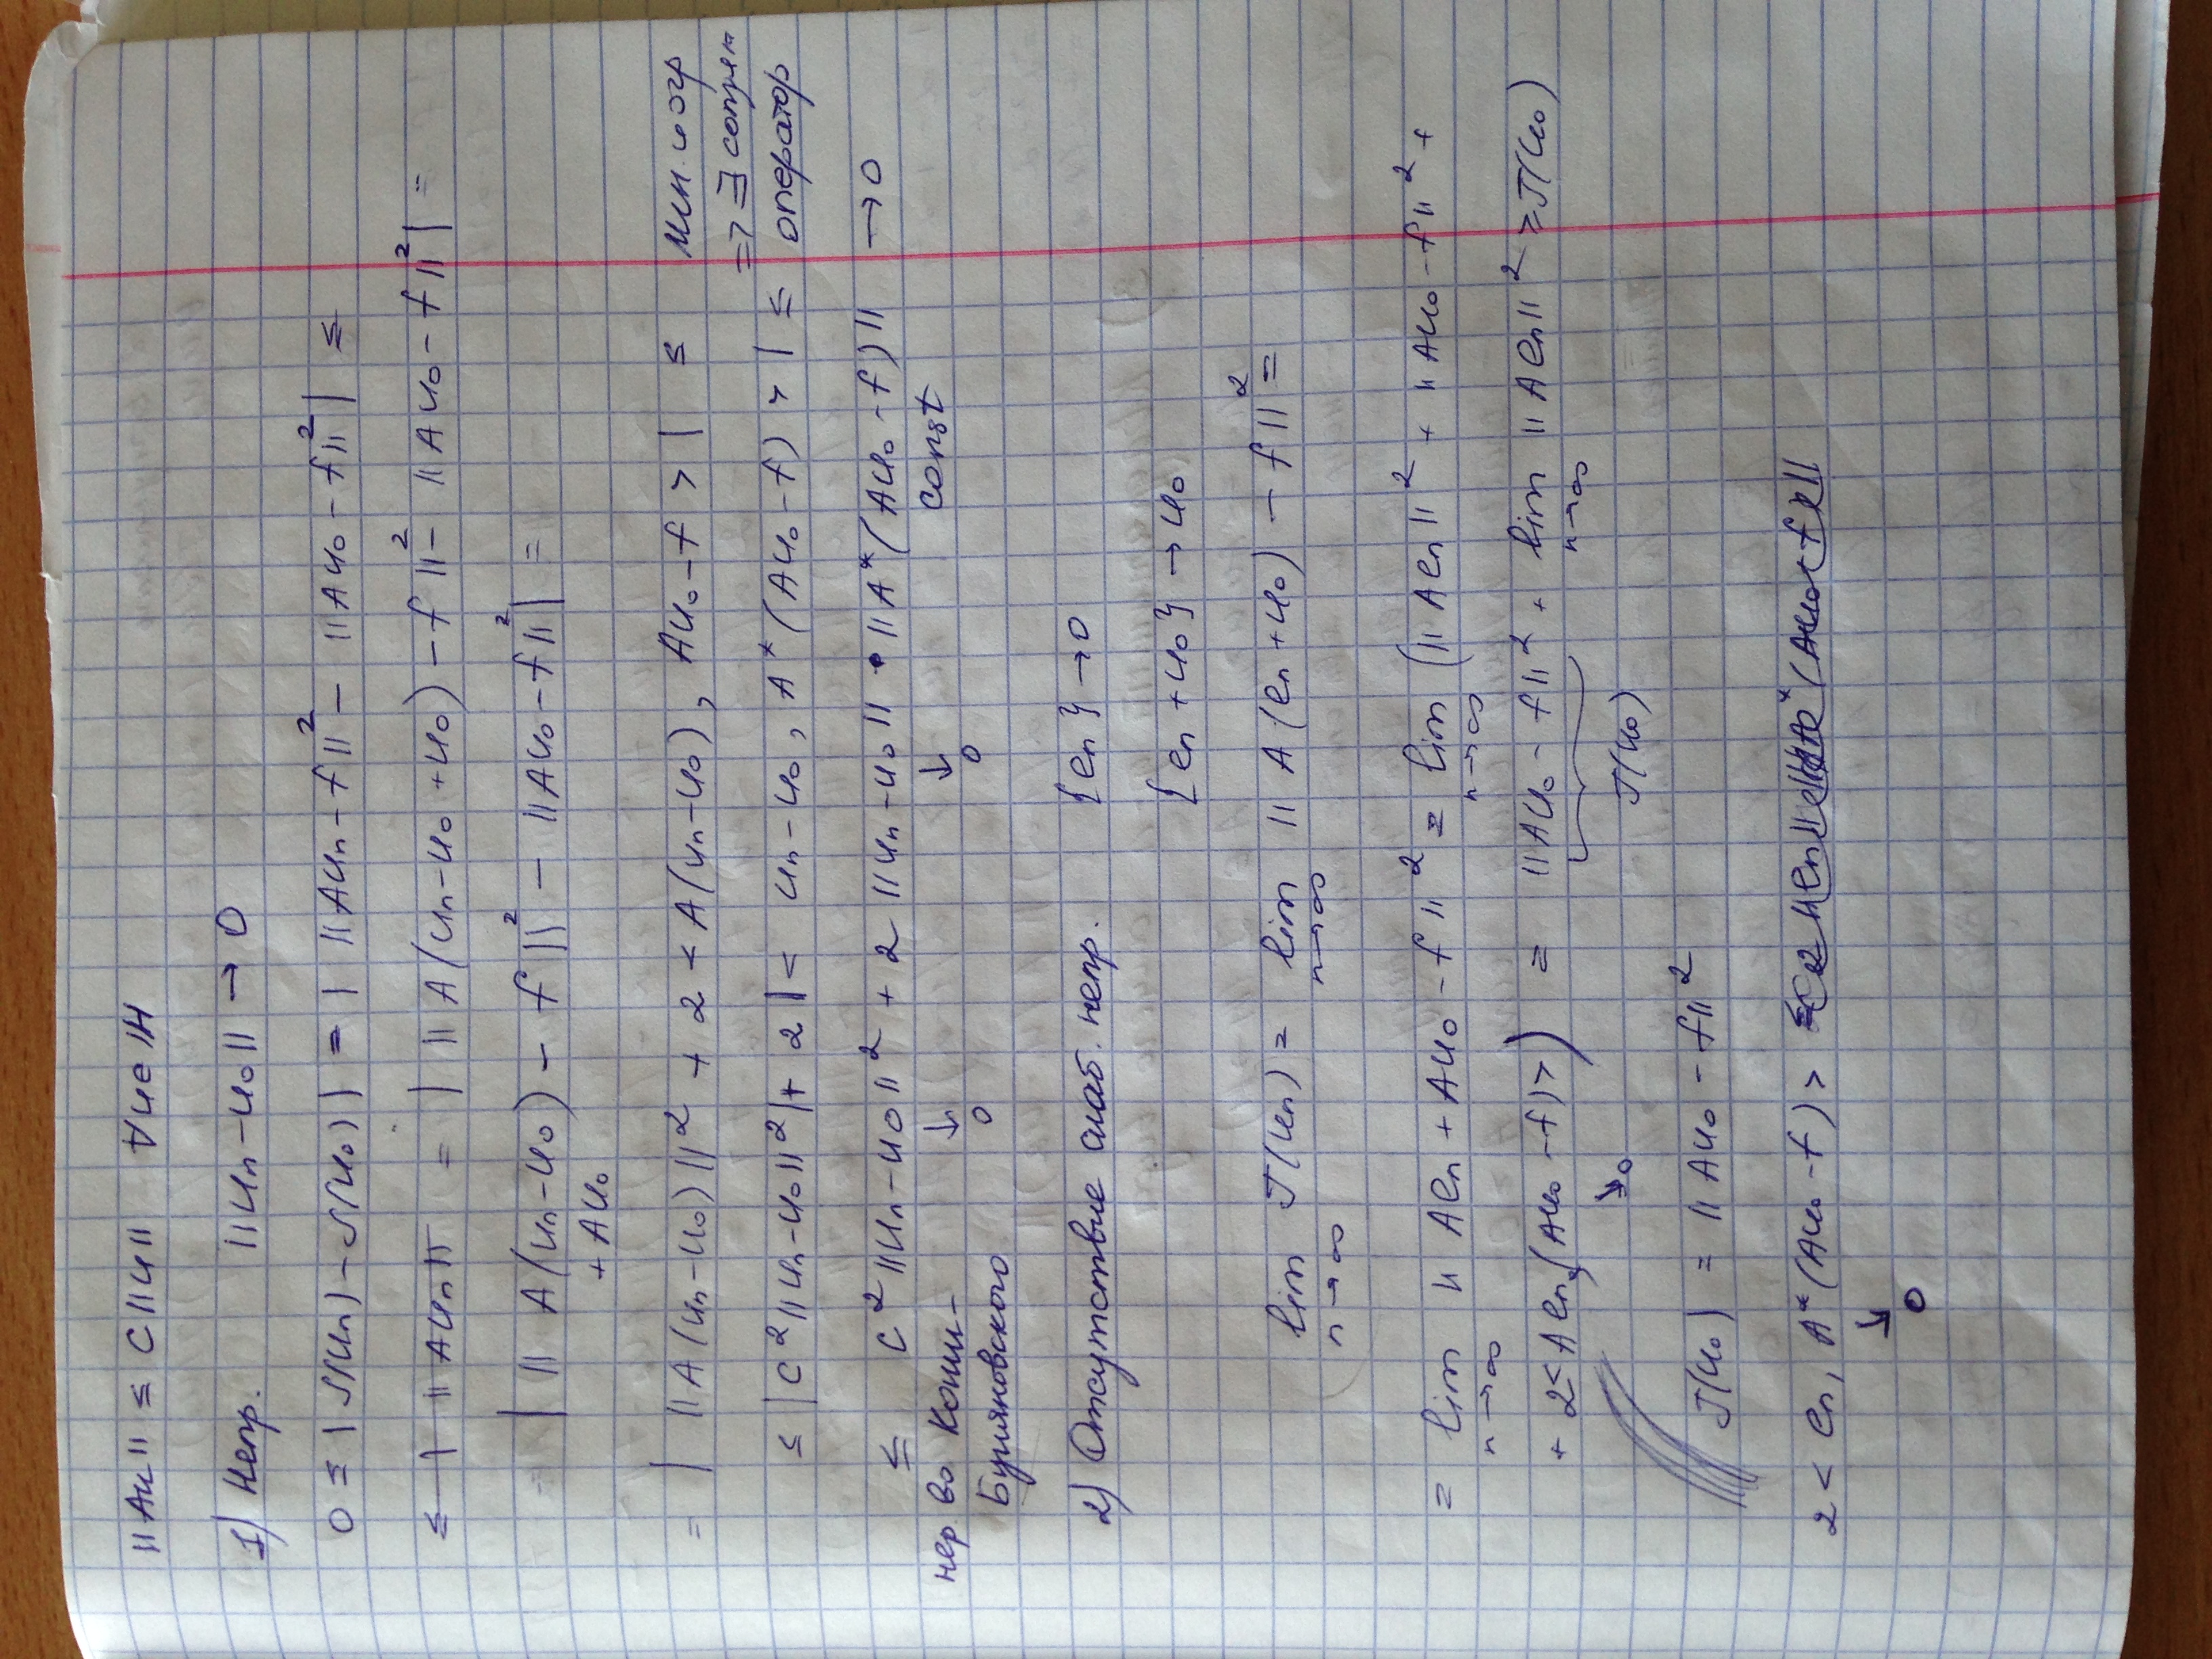 ||Au|| ≤ C||u|| ∀u∈H
1) Непр. ||un-u0|| → 0
0 ≤ |J(un)-J(u0)| = | ||Aun-f||² - ||Au0-f||² | ≤
≤ | ||Aun = | ||A(un-u0+u0)-f||² - ||Au0-f||² | =
| ||A(un-u0) - f||² - ||Au0-f||² | =
+ Au0
= | ||A(un-u0)||² + 2<A(un-u0), Au0-f> | ≤ лин. и огр
⇒ ∃ сопряж
≤ |C²||un-u0||²|+ 2|< un-u0, A*(Au0-f)>| ≤ оператор
≤ C²||un-u0||² + 2||un-u0||·||A*(Au0-f)|| → 0
нер. во Коши- ↓ 0 ↓ 0 const
Буняковского
2) Отсутствие слаб. непр. {en} → 0
{en+u0} → u0
lim n→∞ J(un) = lim n→∞ ||A(en+u0)-f||² =
= lim n→∞ ||Aen+Au0-f||² = lim n→∞ (||Aen||² + ||Au0-f||² +
+ 2<Aen,(Au0-f)>) = ||Au0-f||² + lim n→∞ ||Aen||² ≥ J(u0)
↓ 0 J(u0)
J(u0) = ||Au0-f||²
2<en, A*(Au0-f)>
↓ 0